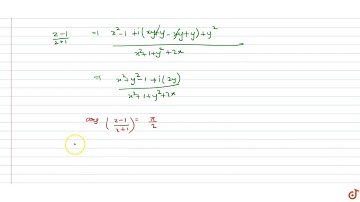 z-1/z+1 ⇒ x²-1+i(xy+y-xy+y)+y² / x²+1+y²+2x
⇒ x²+y²-1+i(2y) / x²+1+y²+2x
arg (z-1/z+1) = π/2